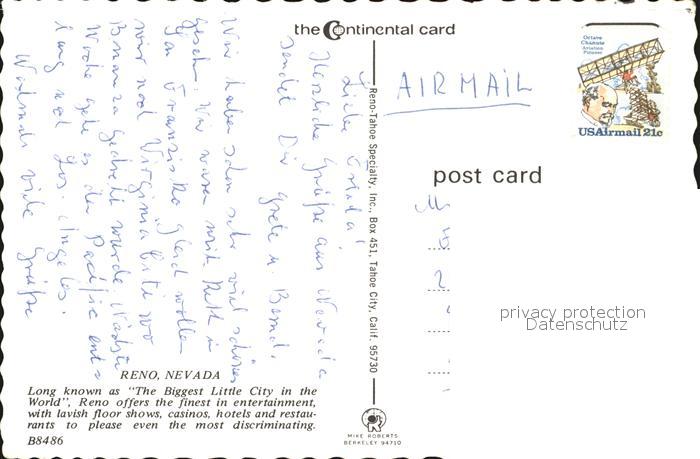 the Continental card
Octave
Chanute
Aviation
Pioneer
USAirmail 21c
AIR MAIL
post card
Reno-Tahoe Specialty, Inc., Box 451, Tahoe City, Calif. 95730
Liebe
Herzliche Grüße aus Nevada
sendet Dir Grete u. Bernd.
Wir haben schon sehr viel schönes
gesehen. Wir waren mit in
San Franzisko. Gleich wollen
wir nach Virginia City wo
Bonanza gedreht wurde. Nächste
Woche geht es den Pacific ent-
lang nach Los Angeles.
Nochmals viele Grüße
RENO, NEVADA
Long known as "The Biggest Little City in the
World", Reno offers the finest in entertainment,
with lavish floor shows, casinos, hotels and restau-
rants to please even the most discriminating.
B8486
MIKE ROBERTS
BERKELEY 94710
privacy protection
Datenschutz